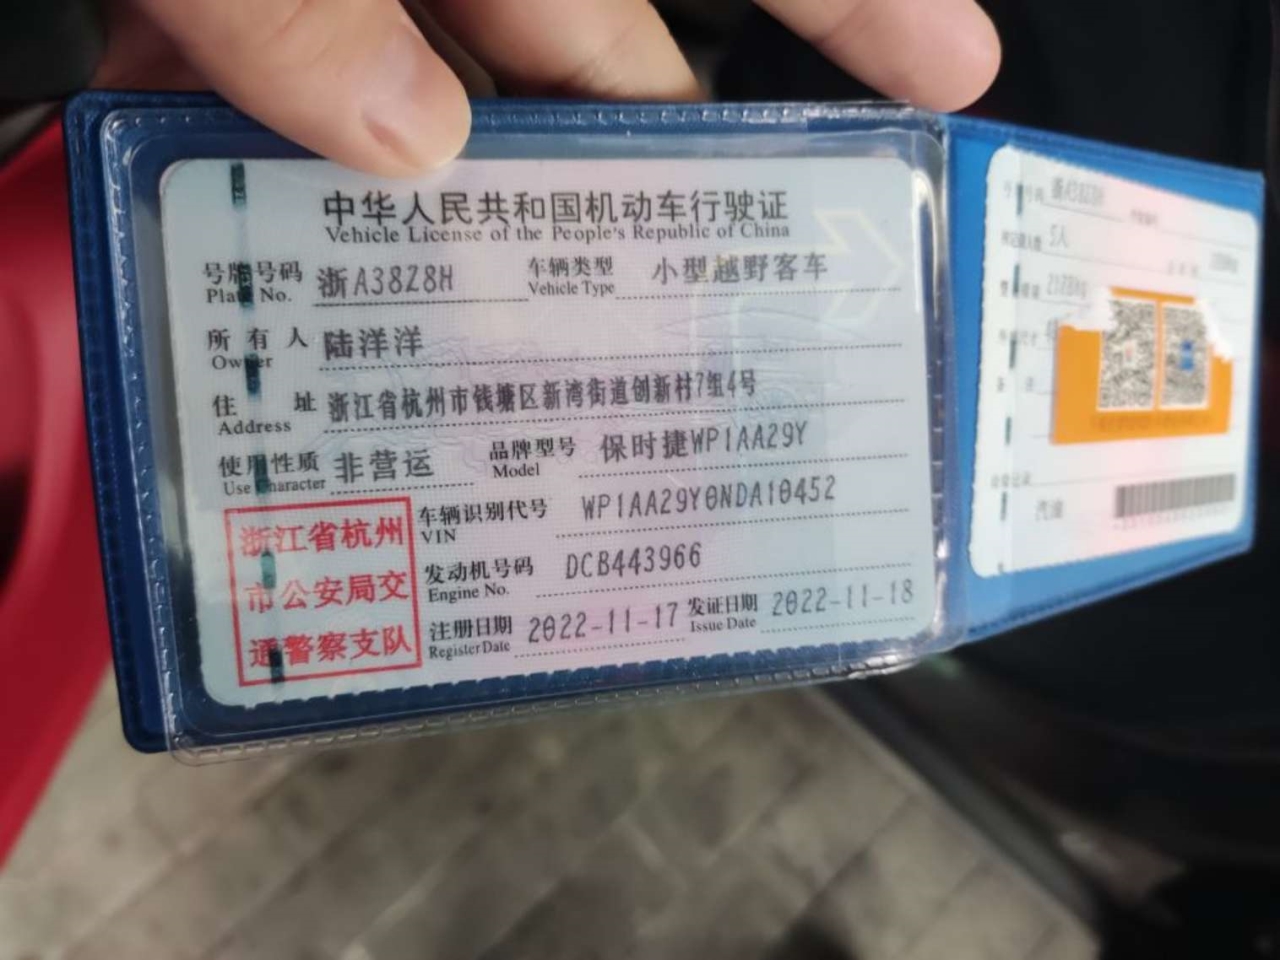 中华人民共和国机动车行驶证
Vehicle License of the People's Republic of China
号牌号码 浙A38Z8H 车辆类型 小型越野客车
Plate No. Vehicle Type
所有人 陆洋洋
Owner
住址 浙江省杭州市钱塘区新湾街道创新村7组4号
Address
使用性质 非营运 品牌型号 保时捷WP1AA29Y
Use Character Model
车辆识别代号 WP1AA29Y0NDA10452
VIN
发动机号码 DCB443966
Engine No.
注册日期 2022-11-17 发证日期 2022-11-18
Register Date Issue Date
浙江省杭州
市公安局交
通警察支队
5人
汽油